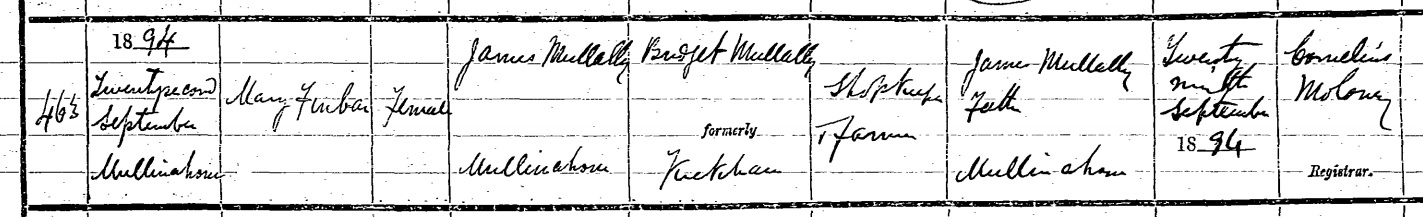 463
1894
Twentysecond
September
Mullinahone
Mary Finbar
Female
James Mullally
Mullinahone
Bridget Mullally
formerly
Shopkeeper
Farmer
James Mullally
Father
Mullinahone
Twenty
ninth
September
1894
Cornelius
Moloney
Registrar.